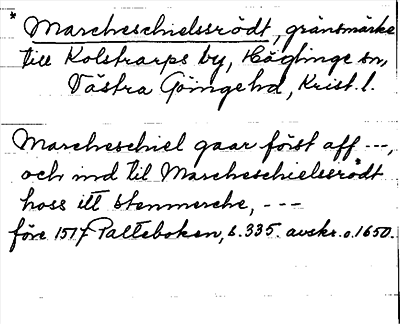 * Marcheschielssrödt, gränsmärke
till Kolstrarps by, Häglinge sn,
Västra Göinge hd, Krist. l.
Marcheschiel gaar först aff ---,
och ind til Marcheschielssrödt
hoss itt stenmerche, ---
före 1517 Palteboken, s. 335. avskr. o. 1650.